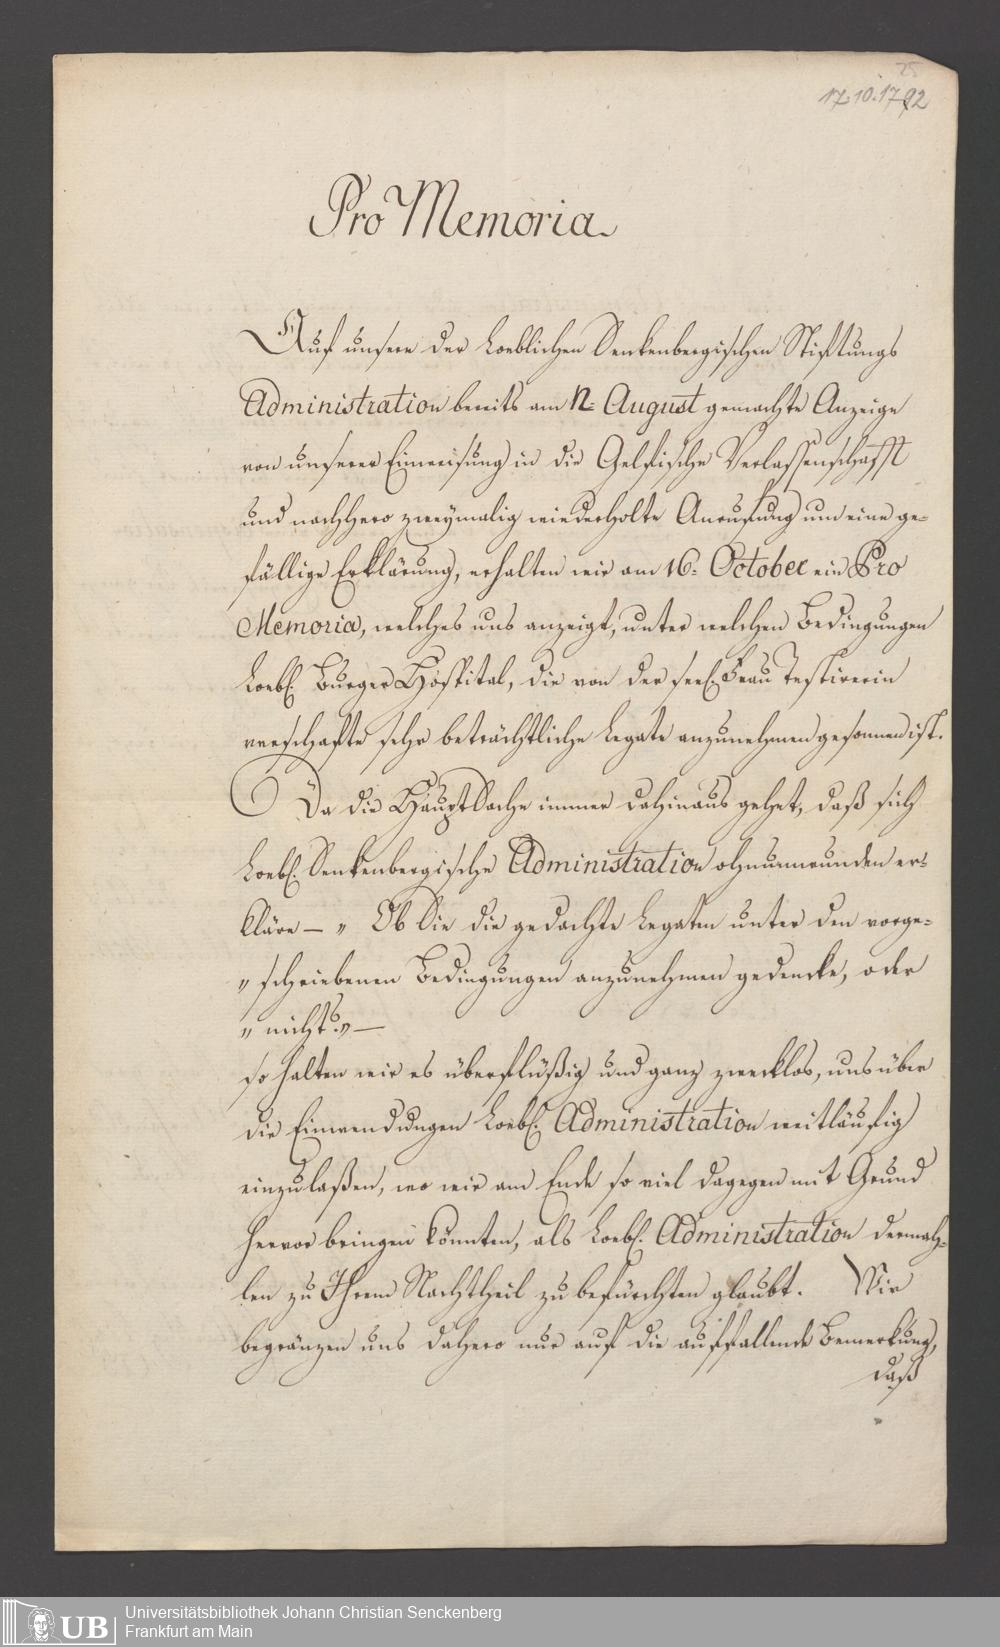 25
17.10.1792
Pro Memoria
Auf unsere der Loeblichen Senkenbergischen Stiftungs
Administration bereits am n= August gemachte Anzeige
von unserer Einweisung in die Gelfische Verlassenschafft
und nachhero zweymalig wiederholte Anrufung um eine ge-
fällige Erklärung, erhalten wir am 16= October ein Pro
Memoria, welches uns anzeigt, unter welchen Bedingungen
Loebl. Burger Hospital, die von der seel. Frau Testirerin
verschafte sehr beträchtliche Legate anzunehmen gesonnen ist.
Da die HauptSache immer dahinaus gehet, daß sich
Loebl. Senkenbergische Administration ohnumwunden er-
kläre — „ Ob Sie die gedachte Legaten unter den vorge-
„ schriebenen Bedingungen anzunehmen gedencke, oder
„ nicht?„ —
so halten wir es überflüßig und ganz zwecklos, uns über
die Einwendungen Loebl. Administration weitläufig
einzulaßen, wo wir am Ende so viel dagegen mit Grund
hervor bringen könnten, als Loebl. Administration dermah-
len zu Ihrem Nachtheil zu befürchten glaubt. Wir
begränzen uns dahero nur auf die auffallende Bemerkung,
daß
UB
Universitätsbibliothek Johann Christian Senckenberg
Frankfurt am Main